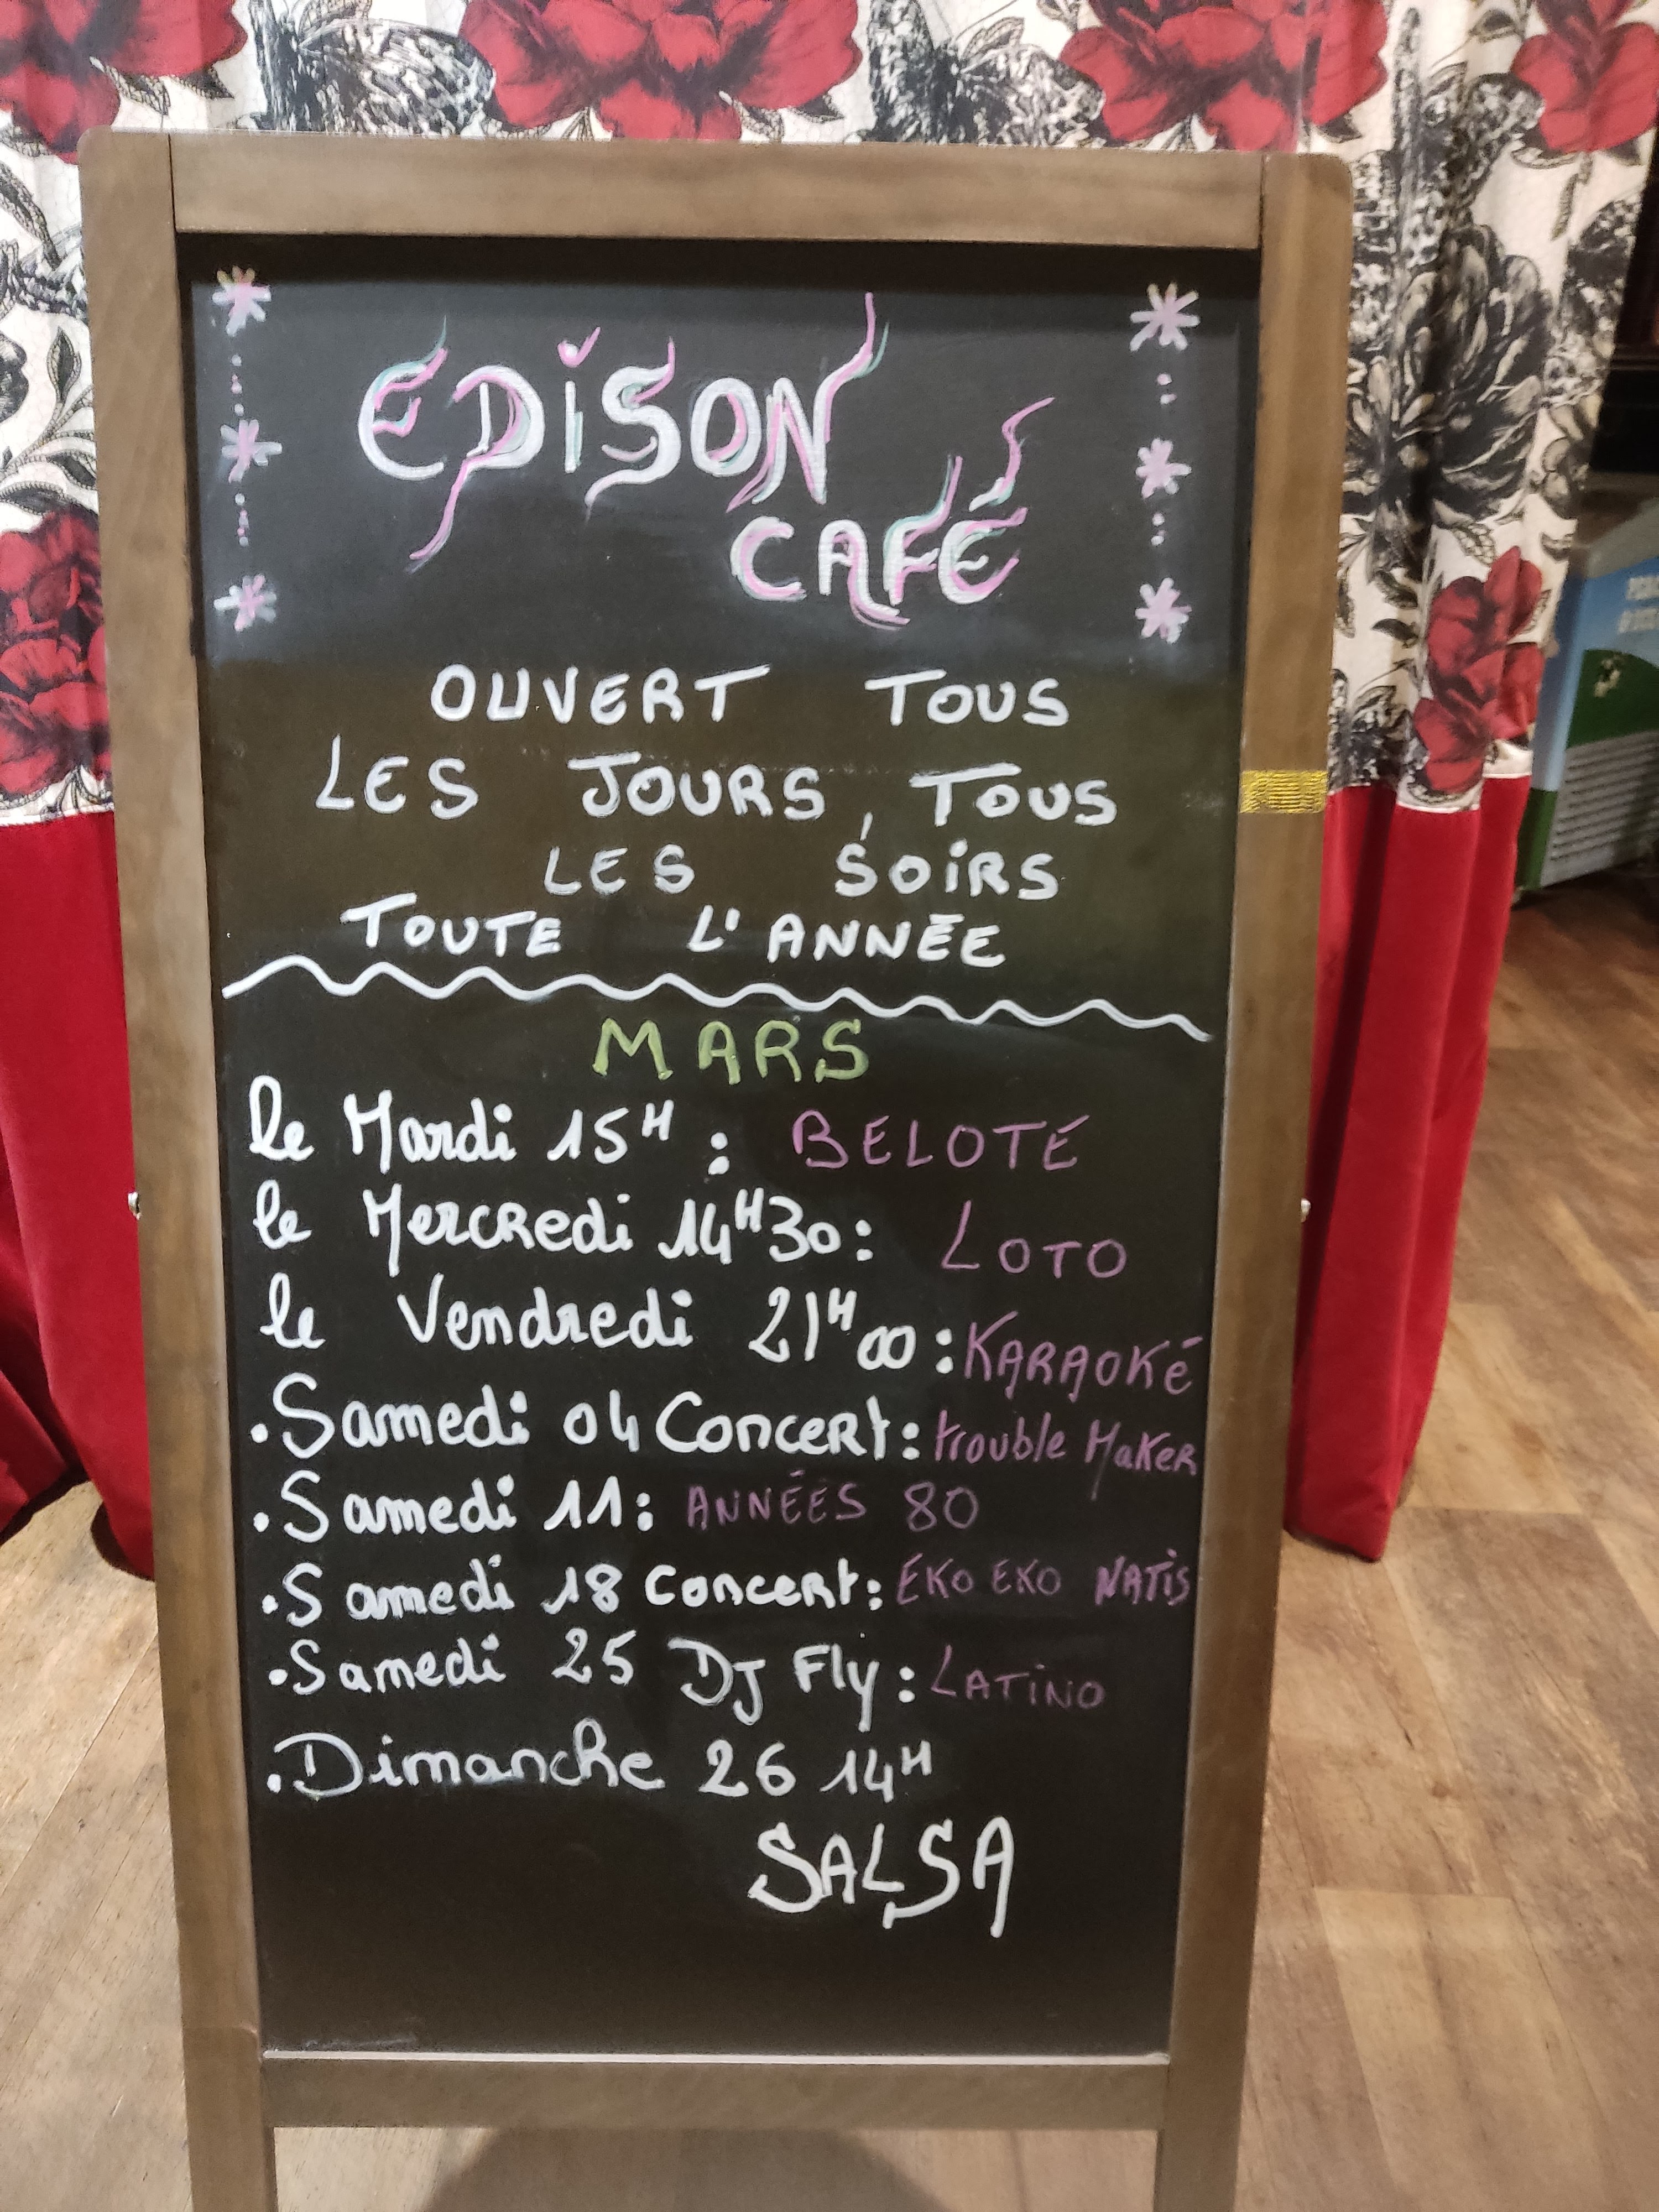 EDiSON
CAFÉ
OUVERT TOUS
LES JOURS, TOUS
LES SOiRS
TOUTE L'ANNÉE
MARS
le Mardi 15H : BELOTE
le Mercredi 14H30 : LOTO
le Vendredi 21H00 : KARAOKé
.Samedi 04 Concert : trouble Maker
.Samedi 11 : ANNÉES 80
.Samedi 18 Concert : EKO EKO NATiS
.Samedi 25 DJ Fly : LATiNO
.Dimanche 26 14H
SALSA